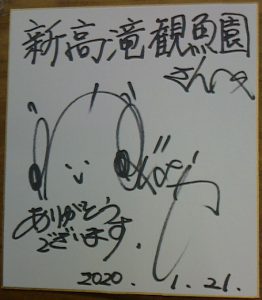 新高滝観魚園
さんへ
ありがとう
ございます.
2020. 1.21.